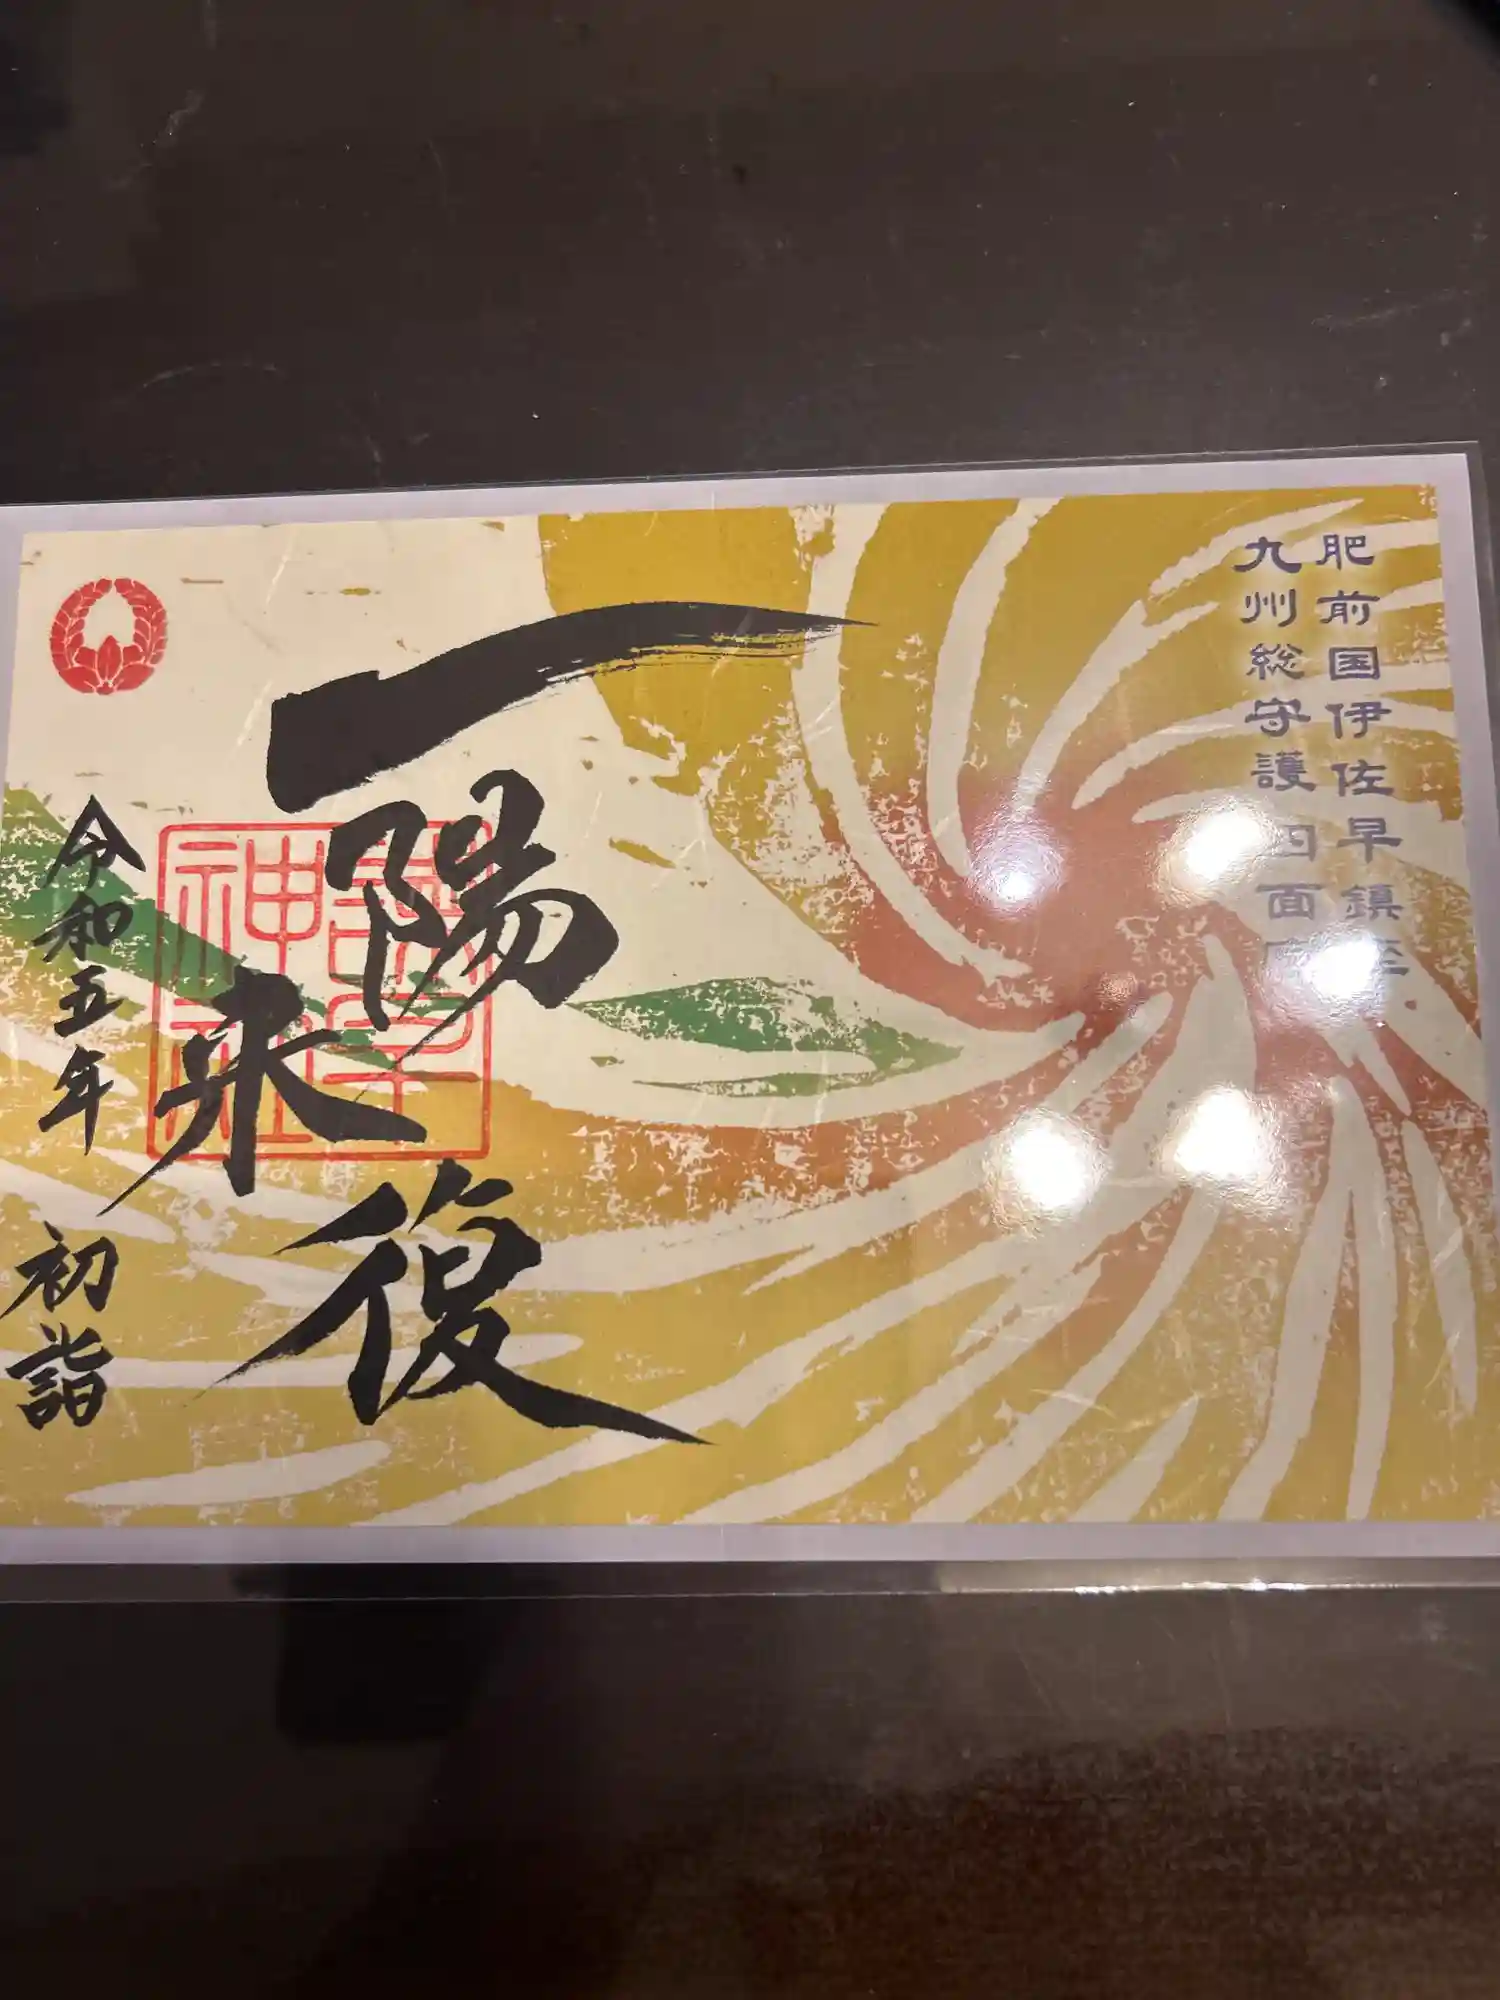 肥前国伊佐早鎮座
九州総守護 四面宮
一陽来復
諫早神社
令和五年 初詣